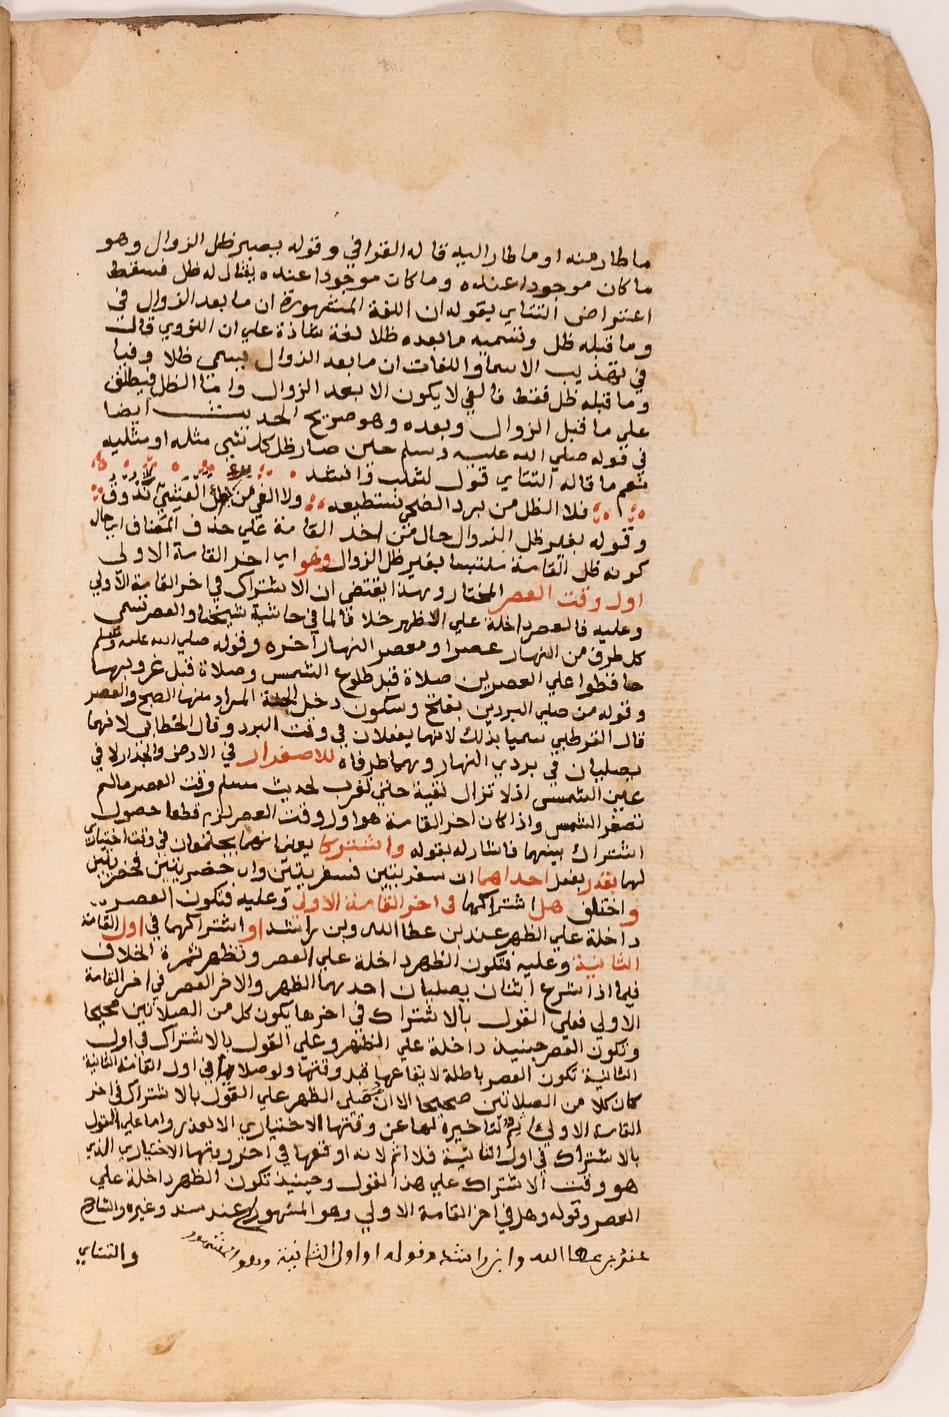 ماطار منه او ماطار اليه قاله القرافي وقوله بصير ظل الزوال وهو
ما كان موجودا عنده وما كان موجودا عنده يقال له ظل فسقط
اعتراض التتاي بقوله ان اللغة المشهورة ان ما بعد الزوال في
وما قبله ظل وتسميه ما بعده ظلا لغة شاذة علي ان النووي قال
في تهذيب الاسما واللغات ان ما بعد الزوال يسمي ظلا وفيا
وما قبله ظل فقط فالفي لا يكون الا بعد الزوال واما الظل فيطلق
علي ما قبل الزوال وبعده وهو صريح الحديث ايضا
في قوله صلي الله عليه وسلم حين صار ظل كل شي مثله او مثليه
نعم ما قاله التتاي قول لثعلب وانشد
فلا الظل من برد الضحي نستطيعه ولا الفي من العشي تذوق
وقوله بغير ظل الزوال حال من اخذ القامة علي حذف المضاف اي حال
كونه ظل القامة ملتبسا بغير ظل الزوال وهو اي اخر القامة الاولي
اول وقت العصر المختار وبهذا يقتضي ان الاشتراك في اخر القامة الاولي
وعليه فالعصر داخلة علي الظهر خلافا لما في حاشية شيخنا والعصر تسمي
كل طرف من النهار عصرا ومعصر النهار اخره وقوله صلي الله عليه وسلم
حافظوا علي العصرين صلاة قبل طلوع الشمس وصلاة قبل غروبها
وقوله من صلي البردين بفتح وسكون دخل الجنة المراد منها الصبح والعصر
قال القرطبي سميا بذلك لانهما يفعلان في وقت البرد وقال الخطابي لانهما
يصليان في بردي النهار وهما طرفاه للاصفرار في الارض والجدار لا في
عين الشمس اذ لا تزال نقية حتي تغرب لحديث مسلم وقت العصر ما لم
تصفر الشمس واذا كان اخر القامة هو اول وقت العصر لزم قطعا حصول
اشتراك بينهما فاشار له بقوله واشتركا يعني انهما يجتمعان في وقت اختياري
لهما بقدر بفعل احداهما ان سفريتين فسفريتين وان حضريتين فحضريتين
واختلف هل اشتراكهما في اخر القامة الاولي وعليه فتكون العصر
داخلة علي الظهر عند بن عطا الله وبن راشد او اشتراكهما في اول القامة
الثانية وعليه فتكون الظهر داخلة علي العصر وتظهر ثمرة الخلاف
فيما اذا شرع اثنان يصليان احدهما الظهر والاخر العصر في اخر القامة
الاولي فعلي القول بالاشتراك في اخرها يكون كل من الصلاتين صحيحا
وتكون العصر حينيذ داخلة علي الظهر وعلي القول بالاشتراك في اول
الثانية تكون العصر باطلة لايقاعها قبل وقتها ولو صلاها في اول القامة الثانية
كان كلا من الصلاتين صحيحا الا ان صلي الظهر علي القول بالاشتراك في اخر
القامة الاولي تاخيره لها عن وقتها الاختياري الا لعذر واما علي القول
بالاشتراك في اول الثانية فلا اثم لانه اوقعها في اخر وقتها الاختياري الذي
هو وقت الاشتراك علي هذا القول وحينيذ تكون الظهر داخلة علي
العصر وقوله وهل في اخر القامة الاولي وهو المشهور عند سند وغيره والشارح
بن عطا الله وابن راشد وقوله او اول الثانية وهو المشهور والتتاي